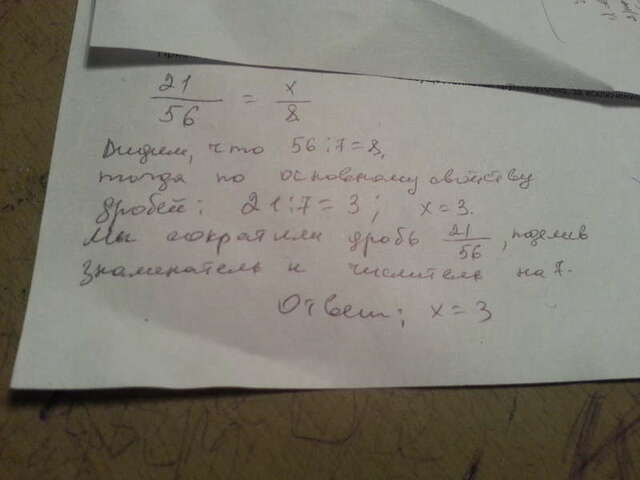 21/56 = x/8
Видим, что 56:7=8,
тогда по основному свойству
дробей: 21:7=3; x=3.
Мы сократили дробь 21/56, поделив
знаменатель и числитель на 7.
Ответ: x=3